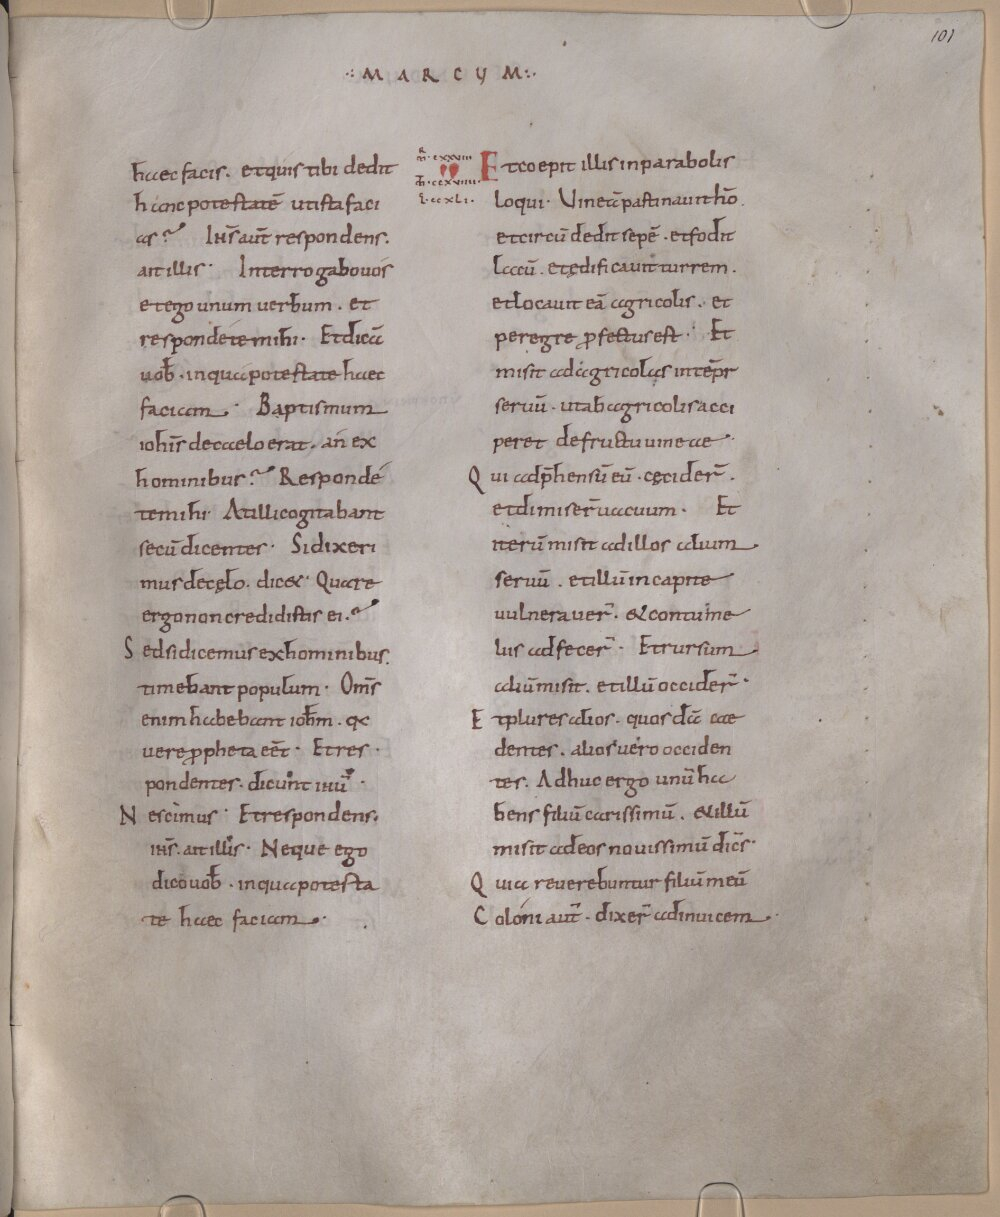 101
·: MARCUM :·
haec facis. et quis tibi dedit
hanc potestatē ut ista faci
as? Ihs̄ aut̄ respondens.
ait illis· Interrogabo vos
et ego unum verbum. et
respondete mihi· Et dicā
vob̄. in qua potestate haec
faciam. Baptismum
iohīs de caelo erat. an̄ ex
hominibus? Respondé
te mihi· At illi cogitabant
secū dicentes· Si dixeri
mus de cęlo. dicet̄· Quare
ergo non credidistis ei.?
Sed si dicemus ex hominibus.
timebant populum· Om̄s
enim habebant ioh̄m. qa
vere ꝓpheta eēt· Et res
pondentes. dicunt ihū·
Nescimus· Et respondens.
ihs̄. ait illis· Neque ego
dico vob̄. in qua potesta
te haec faciam.
m̄·cxxviii
m̄t·ccxviiii·
l·ccxli·
Et coepit illis in parabolis
loqui· Vineā pastinavit hō.
et circū dedit sepē. et fodit
lacū. et ędificavit turrem.
et locavit eā agricolis. et
peregre ꝓfectus est· Et
misit ad agricolas in tēpr
servū. ut ab agricolis acci
peret de fructu vineae·
Qui adp̄hensū eū. cęcider̄.
et dimiser̄ vacuum· Et
iterū misit ad illos alium
servū. et illū in capite
vulneraver̄. & contume
liis adfecer̄· Et rursum
aliū misit. et illū occider̄·
Et plures alios. quosdā cae
dentes. alios vero occiden
tes. Adhuc ergo unū ha
bens filiū carissimū. & illū
misit ad eos novissimū dic̄s·
Quia reverebuntur filiū meū
Coloni aut̄. dixer̄ ad invicem·